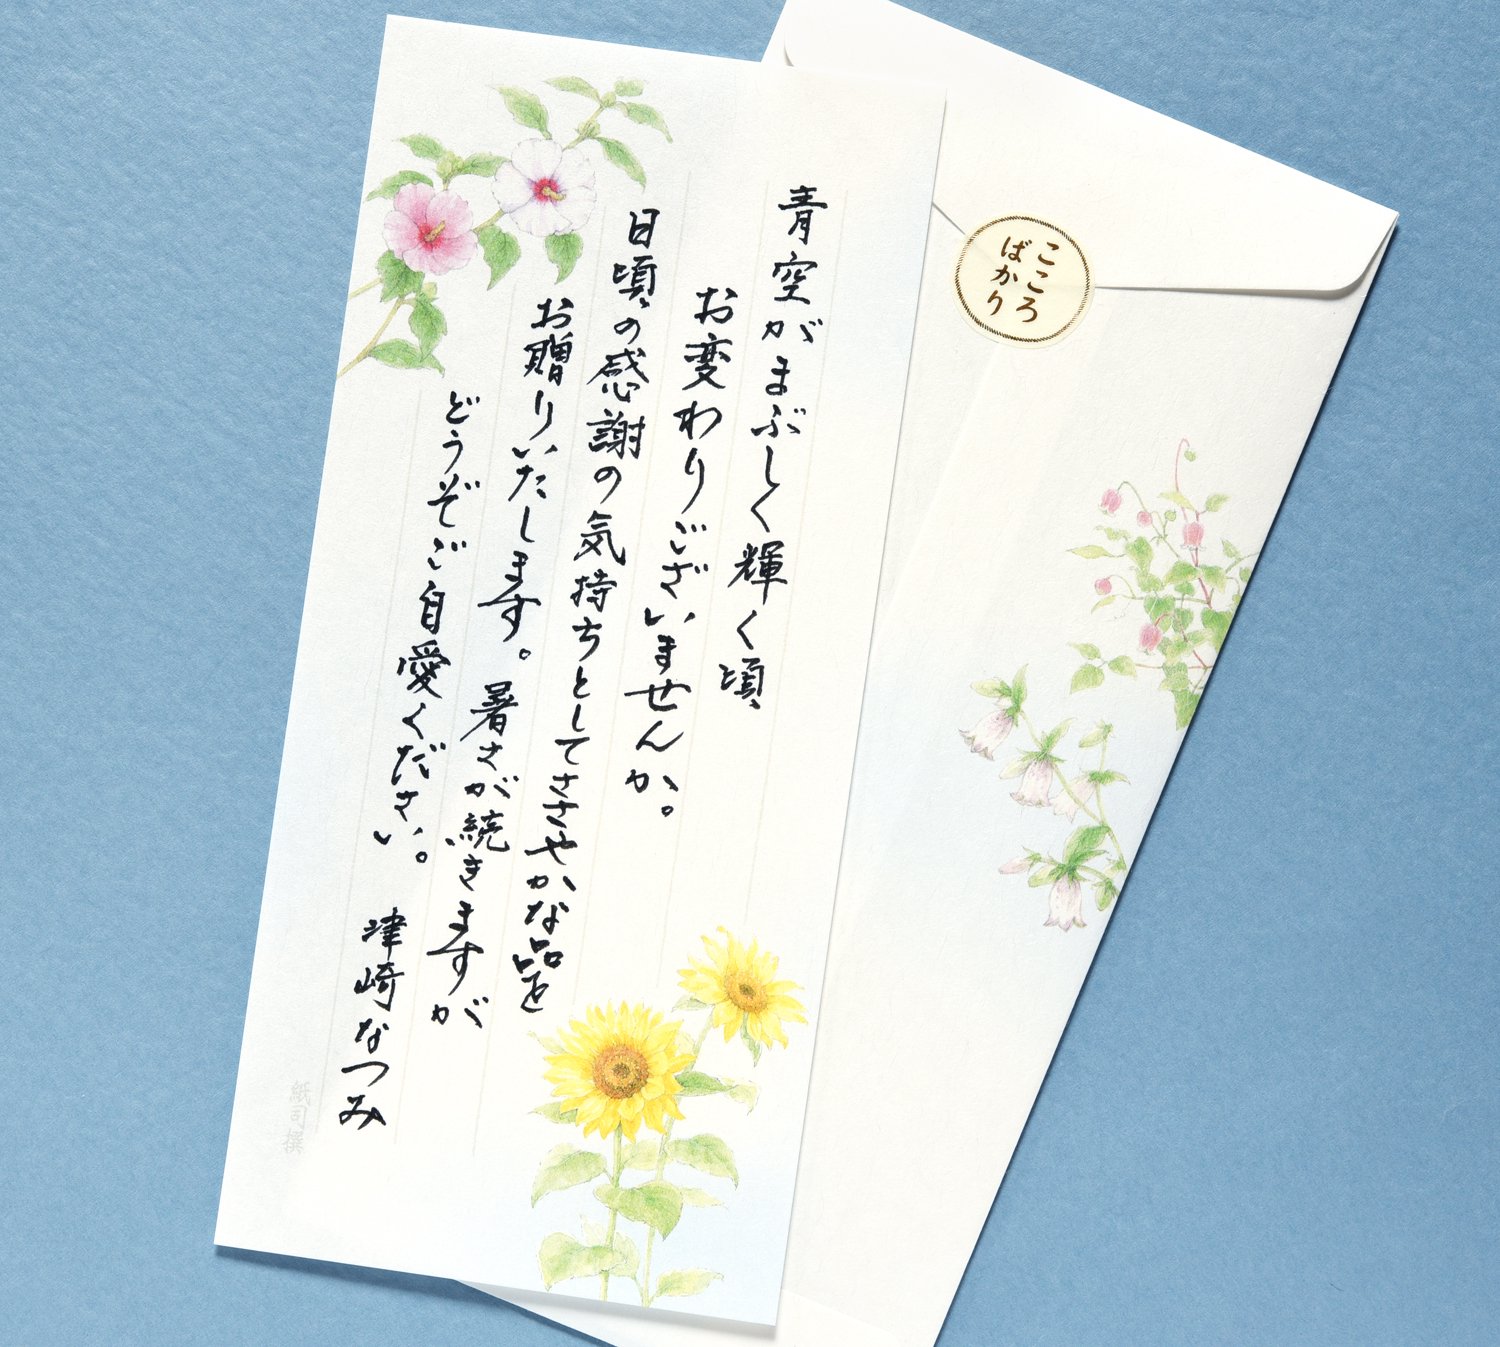 青空がまぶしく輝く頃、
お変わりございませんか。
日頃の感謝の気持ちとしてささやかな品を
お贈りいたします。暑さが続きますが
どうぞご自愛ください。
津崎なつみ
紙司撰
こころ
ばかり